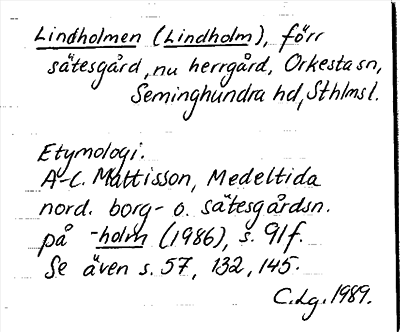 Lindholmen (Lindholm), förr
sätesgård, nu herrgård, Orkesta sn,
Seminghundra hd, Sthlms l.
Etymologi.
A-C. Mattisson, Medeltida
nord. borg- o. sätesgårdsn.
på -holm (1986), s. 91f.
Se även s. 57, 132, 145.
C.dg. 1989.